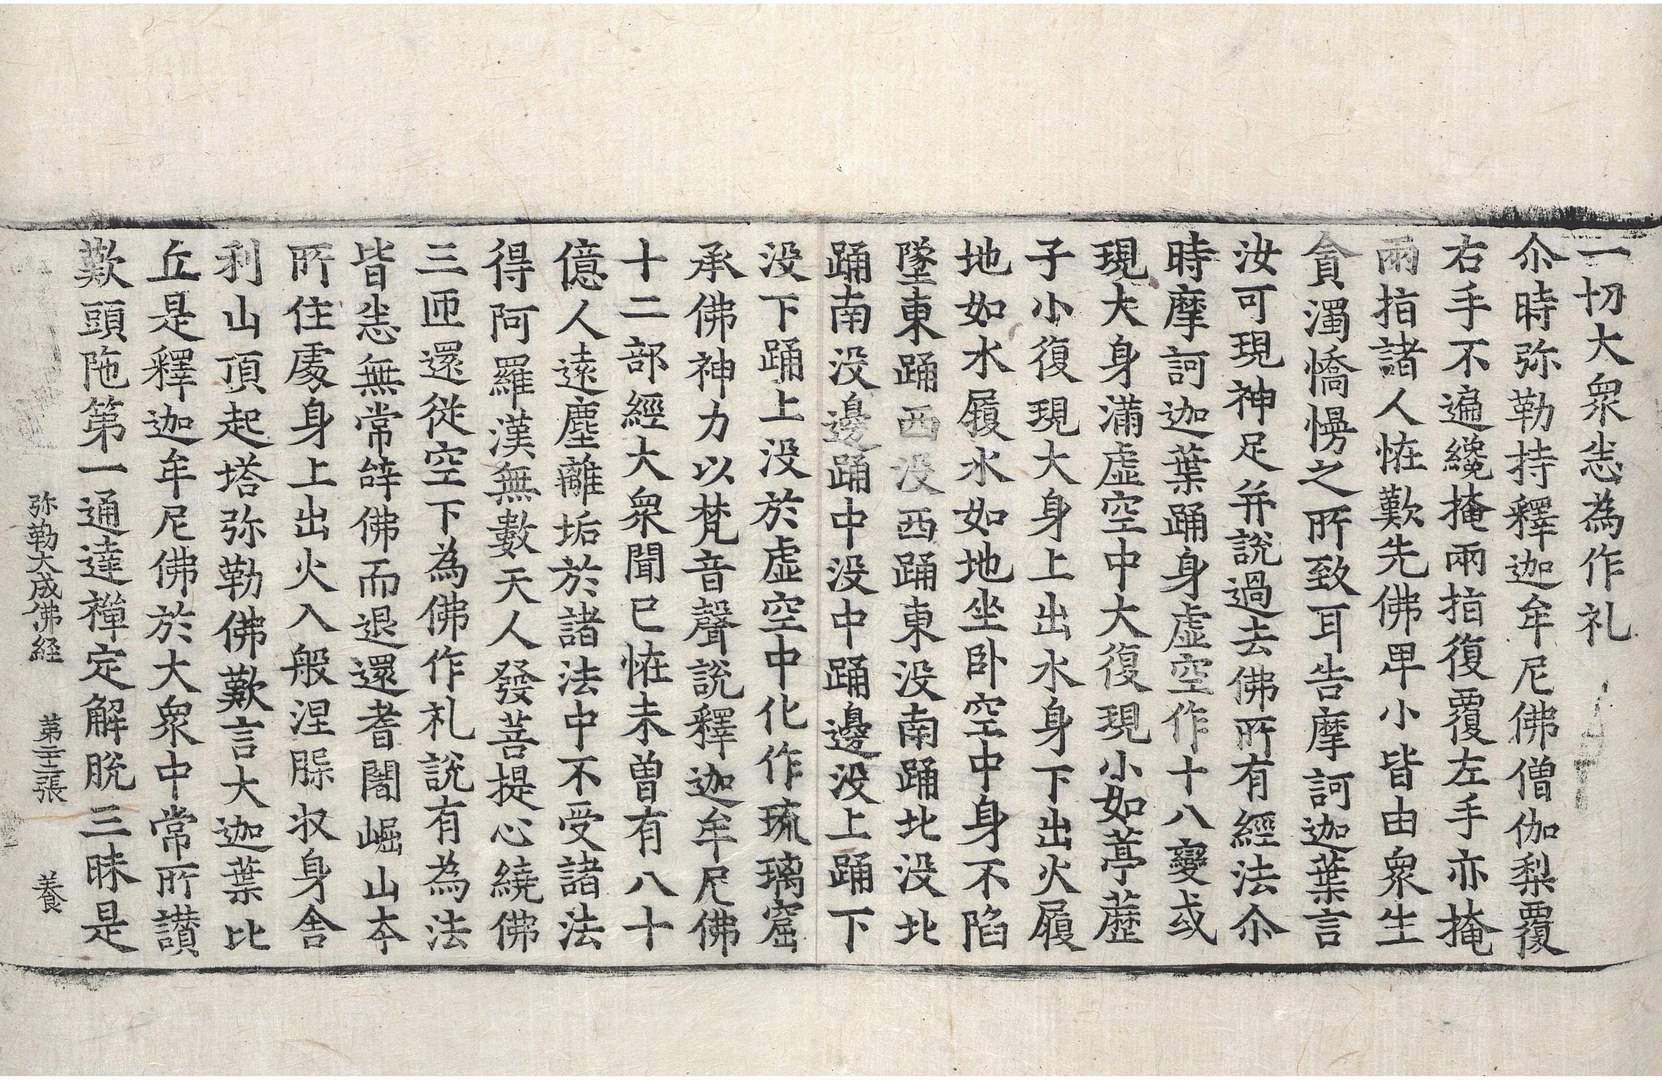 一切大衆悉為作礼
尒時弥勒持釋迦牟尼佛僧伽梨覆
右手不遍纔掩兩指復覆左手亦掩
兩指諸人恠歎先佛卑小皆由衆生
貪濁憍慢之所致耳告摩訶迦葉言
汝可現神足并說過去佛所有經法尒
時摩訶迦葉踊身虚空作十八變或
現大身滿虚空中大復現小如葶藶
子小復現大身上出水身下出火履
地如水履水如地坐卧空中身不陷
墜東踊西没西踊東没南踊北没北
踊南没邊踊中没中踊邊没上踊下
没下踊上没於虚空中化作琉璃窟
承佛神力以梵音聲說釋迦牟尼佛
十二部經大衆聞已恠未曾有八十
億人遠塵離垢於諸法中不受諸法
得阿羅漢無數天人發菩提心繞佛
三匝還從空下為佛作礼說有為法
皆悉無常辝佛而退還耆闍崛山本
所住處身上出火入般涅槃収身舎
利山頂起塔弥勒佛歎言大迦葉比
丘是釋迦牟尼佛於大衆中常所讃
歎頭陁第一通達禪定解脫三昧是
弥勒大成佛経 第二十三張 養